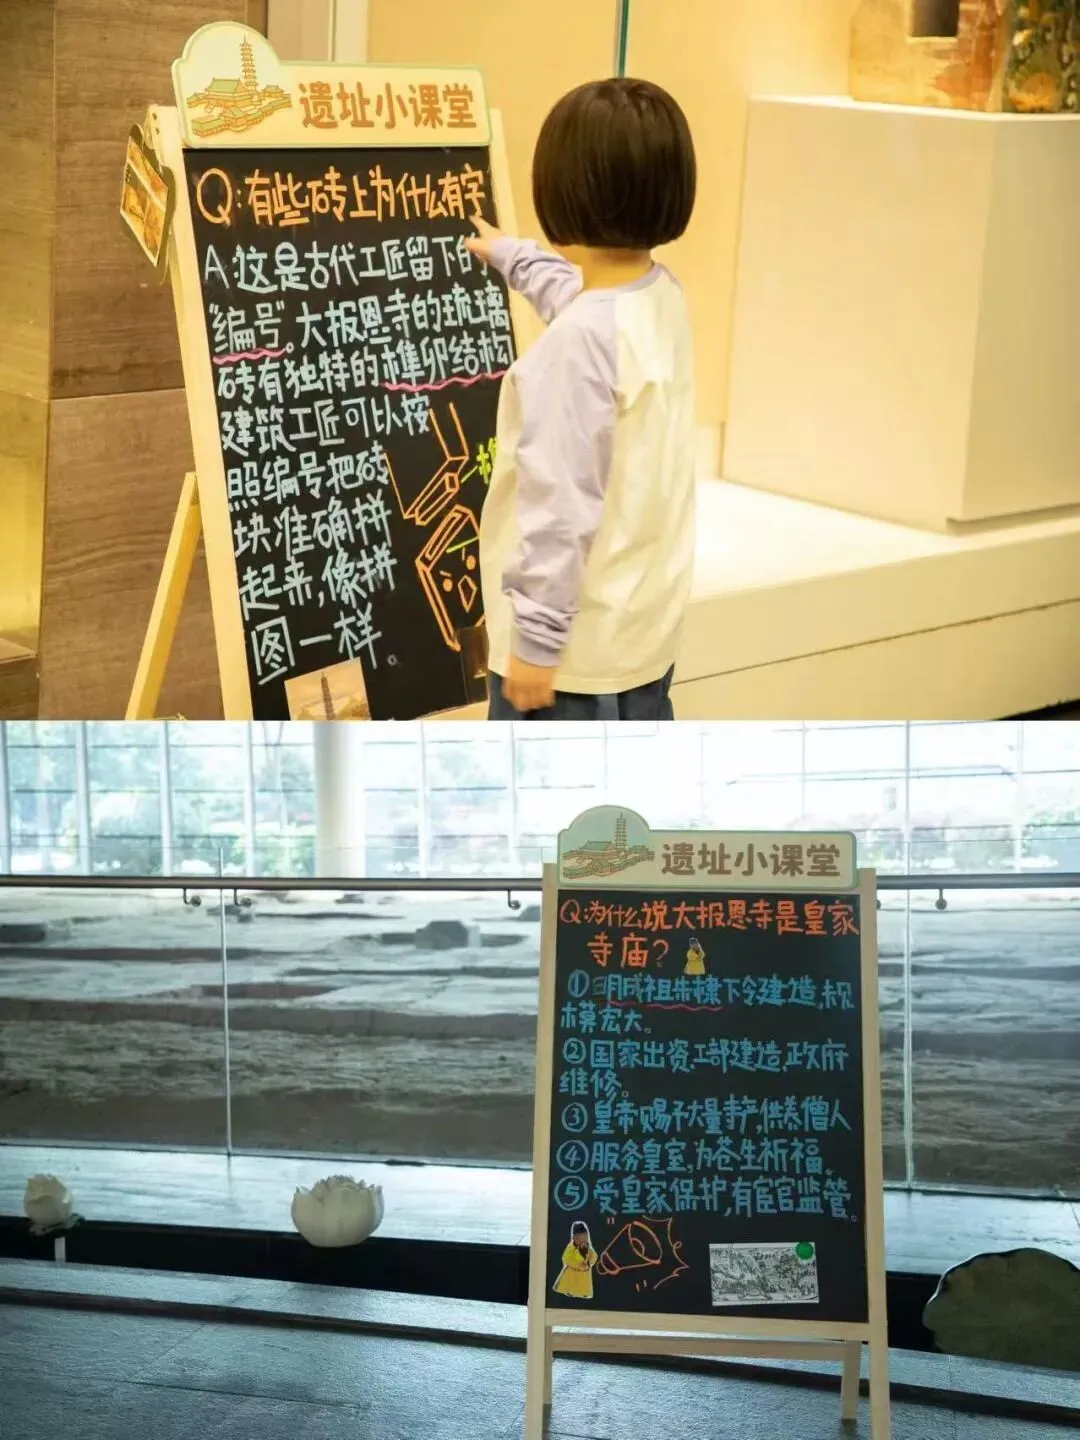 遗址小课堂
Q:有些砖上为什么有字
A:这是古代工匠留下的
"编号"。大报恩寺的琉璃
砖有独特的榫卯结构
建筑工匠可以按
照编号把砖
块准确拼
起来,像拼
图一样
榫
遗址小课堂
Q:为什么说大报恩寺是皇家
寺庙?
①明成祖朱棣下令建造,规
模宏大。
②国家出资,工部建造,政府
维修。
③皇帝赐予大量寺产,供养僧人
④服务皇室,为苍生祈福。
⑤受皇家保护,有宦官监管。